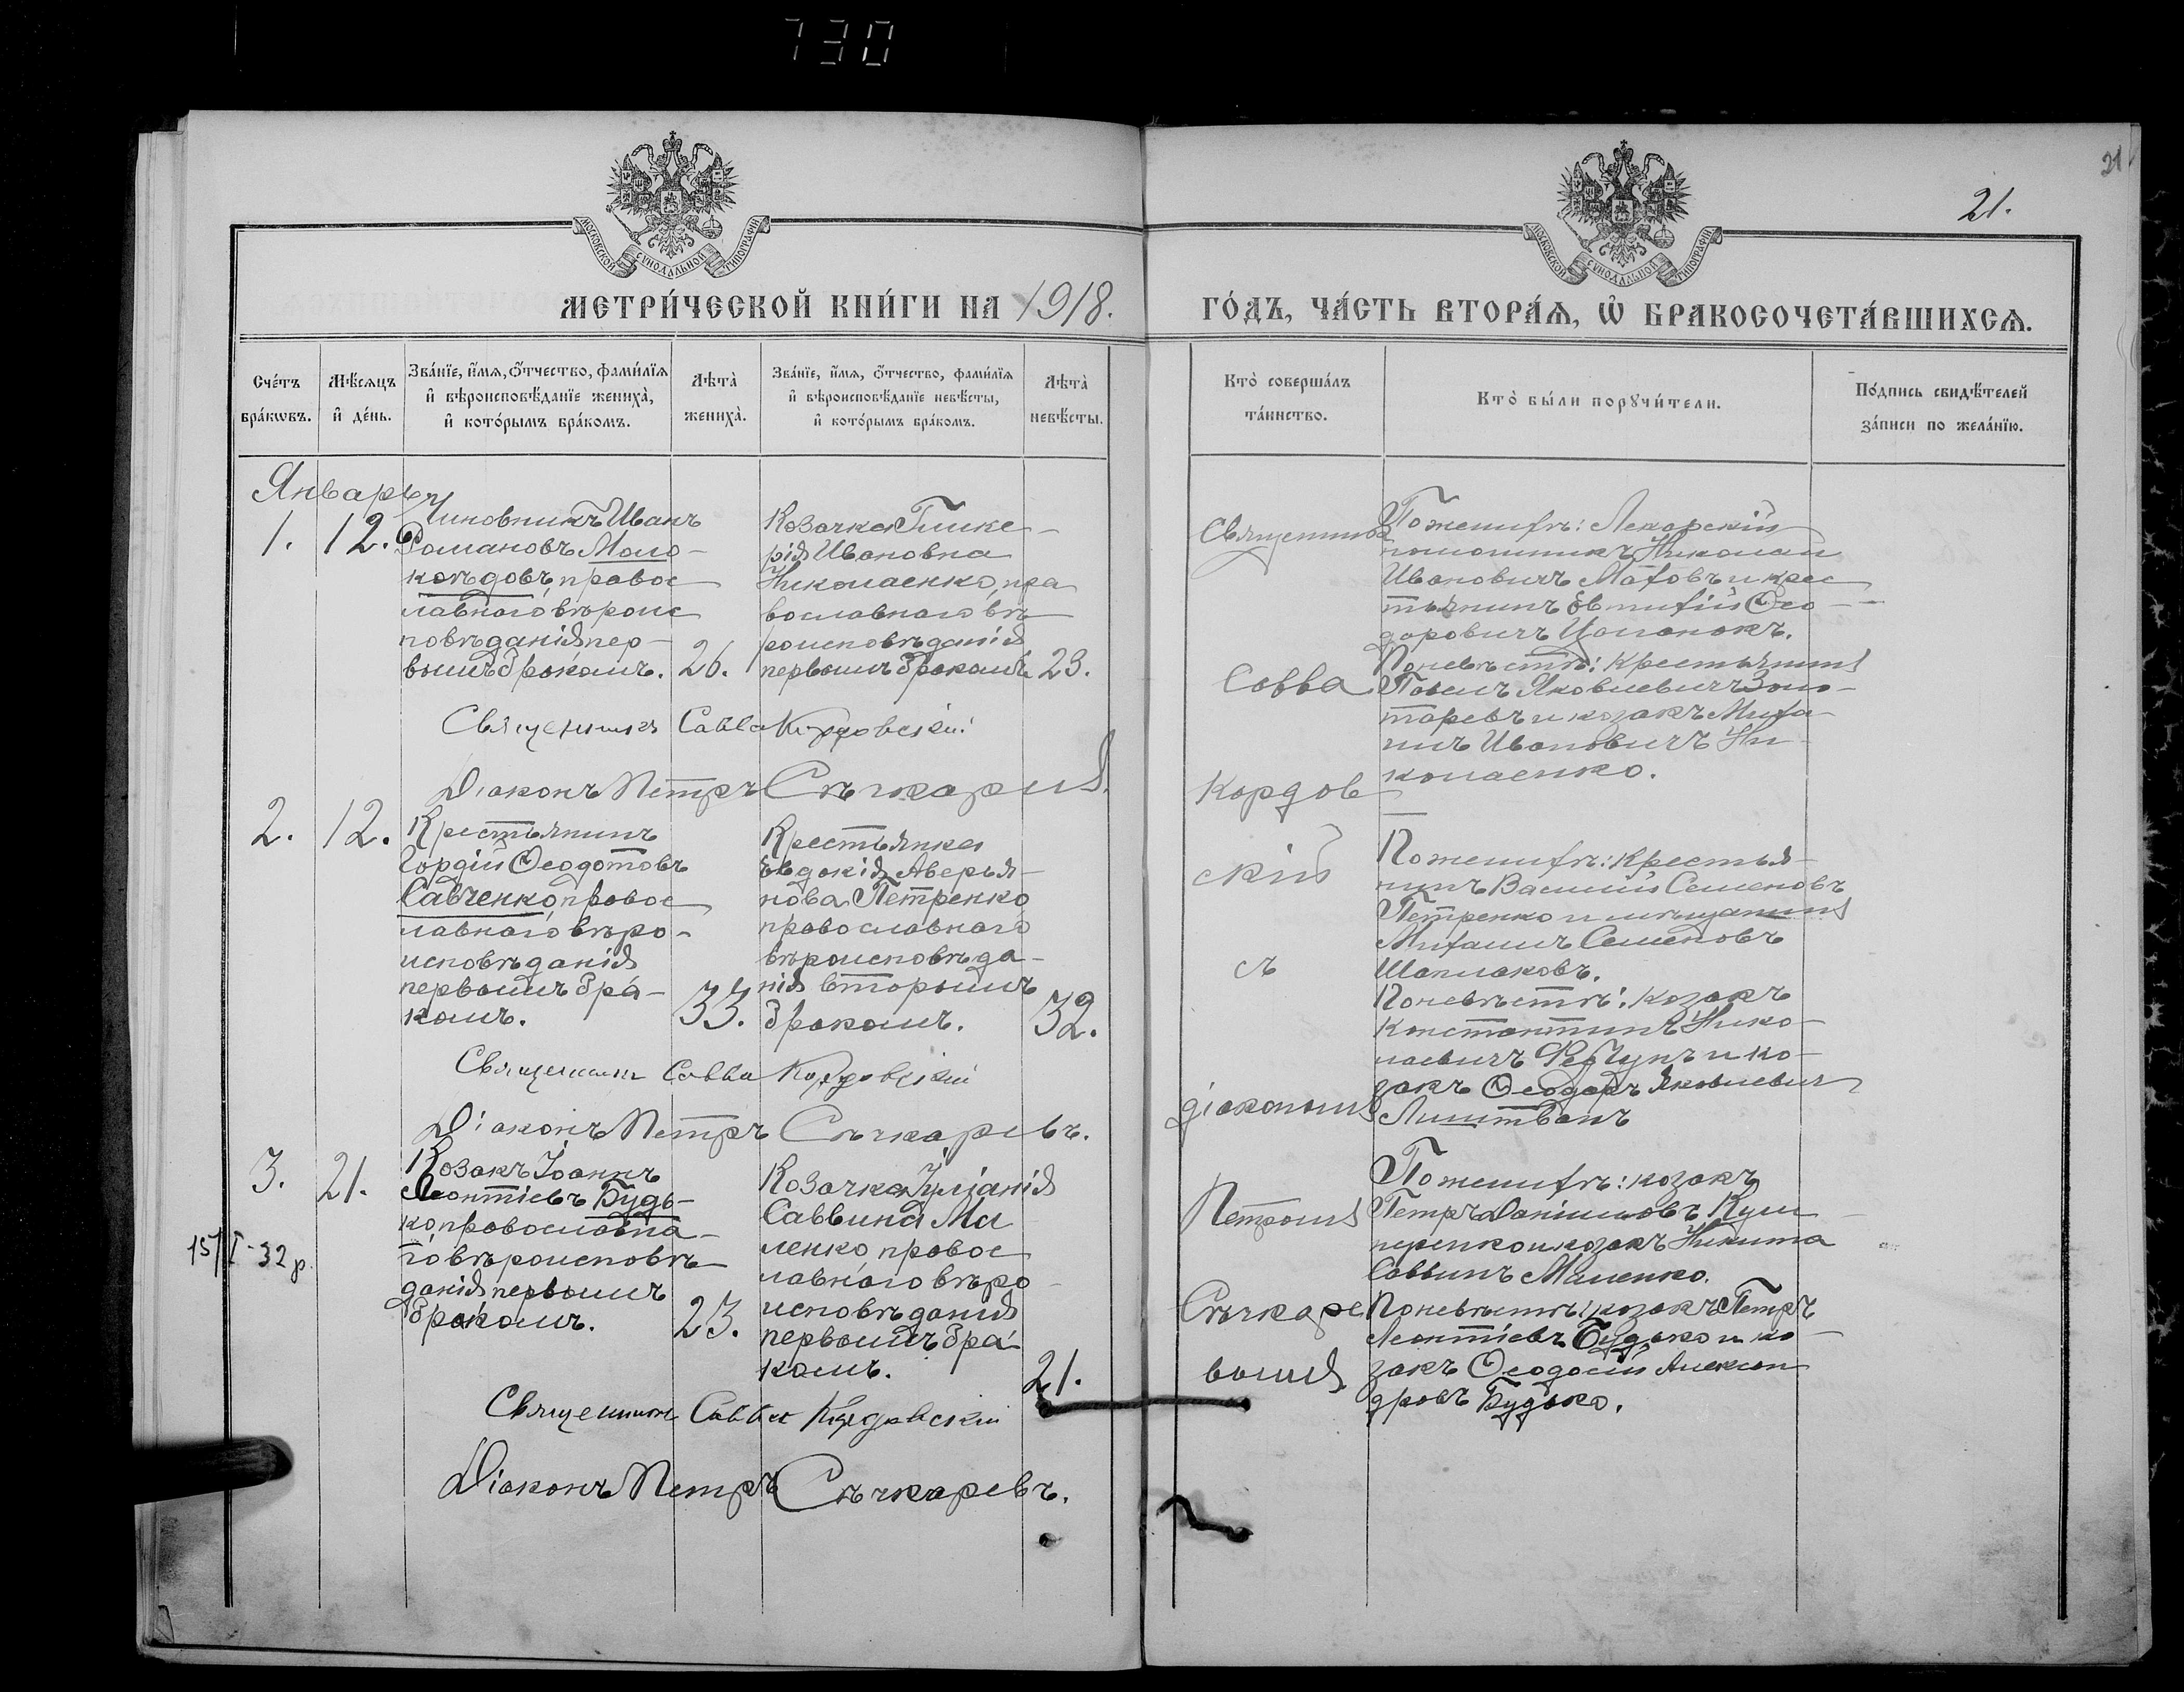 730
21
21.
МОСКОВСКОЙ СѴНОДАЛЬНОЙ ТИПОГРАФІИ
МОСКОВСКОЙ СѴНОДАЛЬНОЙ ТИПОГРАФІИ
МЕТРИ́ЧЕСКОЙ КНИ́ГИ НА 1918.
ГО́ДЪ, ЧА́СТЬ ВТОРА́Ѧ, Ѡ҆ БРАКОСОЧЕТА́ВШИХСѦ.
Сче́тъ
бра́кѡвъ.
Мѣ́сяцъ
и҆ де́нь.
Зва́нїе, и҆́мя, ѻ҆́тчество, фами́лїя
и҆ вѣроисповѣ́данїе жениха̀,
и҆ кото́рымъ бра́комъ.
Лѣта̀
жениха̀.
Зва́нїе, и҆́мя, ѻ҆́тчество, фами́лїя
и҆ вѣроисповѣ́данїе невѣ́сты,
и҆ кото́рымъ бра́комъ.
Лѣта̀
невѣ́сты.
Кто̀ соверша́лъ
та́инство.
Кто̀ бы́ли порꙋчи́тели.
По́дпись свидѣ́телей
за́писи по жела́нїю.
Январь
1.
12.
Чиновникъ Иванъ
Романовъ Моло-
конѣдовъ, правос
лавнаго вѣроис
повѣданія пер-
вымъ бракомъ.
26.
Козачка Глике-
рія Ивановна
Николаенко, пра
вославнаго вѣ
роисповѣданія
первымъ бракомъ
23.
Священникъ Савва Кордовскій
Діаконъ Петръ Сѣчкаревъ.
2.
12.
Крестьянинъ
Гордій Ѳеодотовъ
Савченко, правос
лавнаго вѣро-
исповѣданія
первымъ бра-
комъ.
33.
Крестьянка
Евдокія Аверья-
нова Петренко
православнаго
вѣроисповѣда-
нія вторымъ
бракомъ.
32.
Священникъ Савва Кордовскій
Діаконъ Петръ Сѣчкаревъ.
3.
21.
15/I-32 р.
Козакъ Іоаннъ
Леонтіевъ Будь-
ко православна-
го вѣроисповѣ
данія первымъ
бракомъ.
23.
Козачка Іуліанія
Саввина Ма
ленко правос
лавнаго вѣро
исповѣданія
первымъ бра-
комъ.
21.
Священникъ Савва Кордовскій
Діаконъ Петръ Сѣчкаревъ.
Священникъ
Савва
Кордов
скій
съ
діакономъ
Петромъ
Сѣчкаре
вымъ
По женихѣ: Лекарскій
помошникъ Николай
Ивановичъ и крес
тьянинъ Евтихій Ѳео-
доровичъ
По невѣстѣ: крестьянинъ
Павелъ Яковлевичъ Золо-
таревъ и козакъ Миха-
илъ Ивановичъ Ни-
колаенко.
По женихѣ: крестья-
нинъ Василій Семеновъ
Петренко и мѣщанинъ
Михаилъ Семеновъ
Шаплаковъ.
По невѣстѣ: козакъ
Константинъ Нико-
лаевичъ и ко-
закъ Ѳеодоръ Яковлевич
Лиштванъ
По женихѣ: козакъ
Петръ Даніиловъ
и козакъ Никита
Саввинъ Маленко.
По невѣстѣ: козакъ Петръ
Леонтіевъ Будько и ко-
закъ Ѳеодосій Алексан
дровъ Будько.